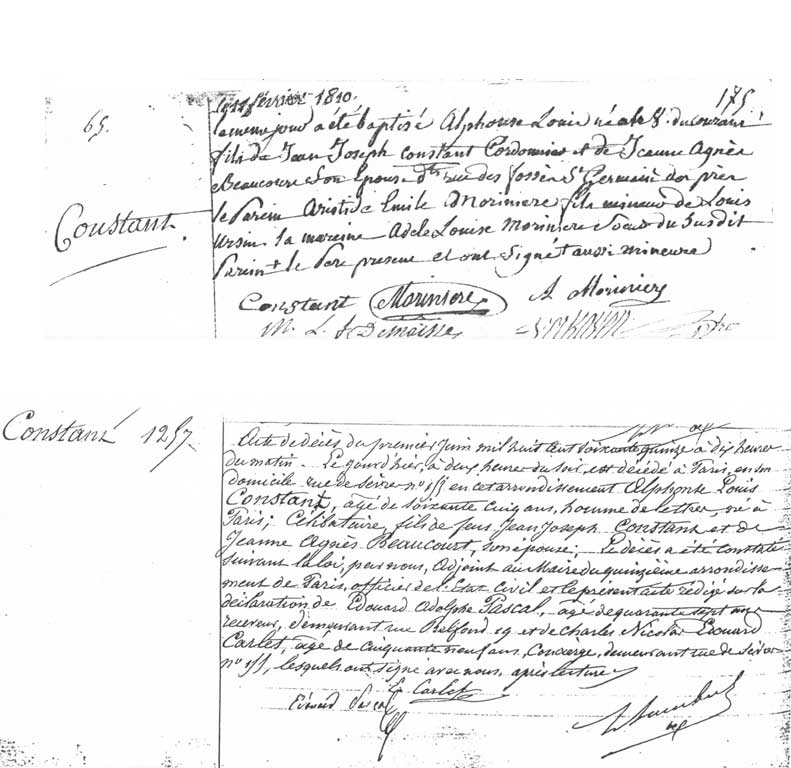 le 11 février 1810.
175.
65.
Constant.
le meme jour a été baptisé Alphonse Louis né le 8 du courant
fils de Jean Joseph Constant Cordonnier et de Jeanne Agnès
Beaucourt son Epouse rue des fossés St Germain des près
le Parein Aristide Emile Moriniere fils mineur de Louis
Ursin la mareine Adele Louise Moriniere Soeur du susdit
Parein le Pere present et ont Signé aussi mineure
Constant Moriniere A Moriniere
M. L.
Constant 1257
Acte de décès du premier Juin mil huit cent soixante quinze à dix heures
du matin. Le jour d'hier, à deux heures du soir, est décédé à Paris, en son
domicile rue de Sèvres no 155 en cet arrondissement Alphonse Louis
Constant, agé de soixante cinq ans, homme de lettres, né à
Paris; Célibataire, fils de feus Jean Joseph Constant et de
Jeanne Agnès Beaucourt, son épouse; Le décès a été constaté
suivant la loi, par nous, adjoint au Maire du quinzième arrondisse-
ment de Paris, officier de l'Etat Civil et le présent acte rédigé sur la
déclaration de Edouard Adolphe Pascal, agé de quarante sept ans
receveur, demeurant rue Belfond 19 et de Charles Nicolas Edouard
Carlet, agé de cinquante neuf ans, Concierge, demeurant rue de Sèvres
no 155, lesquels ont signé avec nous, après lecture
E Carlet
Edouard Pascal